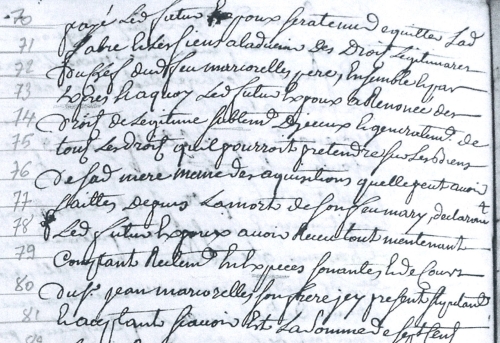 70 payé Led futur Expoux sera tenu d'equitter Lad
71 fabre et Les siens a Ladvenir des Droits Legitimaires
72 Du chef dud feu marcorelles pere, Ensemble par
73 Expres et a quoy Led futur Expoux a Renoncé des
74 Droits de Legitime suplement D'iceux et generalement de
75 tous Les droits qu'il pourroit pretendre sur Les biens
76 De sad mere meme des aquisitions quelle peut avoir
77 faittes depuis La mort de son feu mary, declarant
78 Led futur Expoux avoir Receu tout mentenant
79 Comptant Reelement En Expeces sonantes et de Cours
80 Du sr jean marcorelles son frere jcy present stipulant
81 Et acceptant scavoir Est La somme de sept Cent